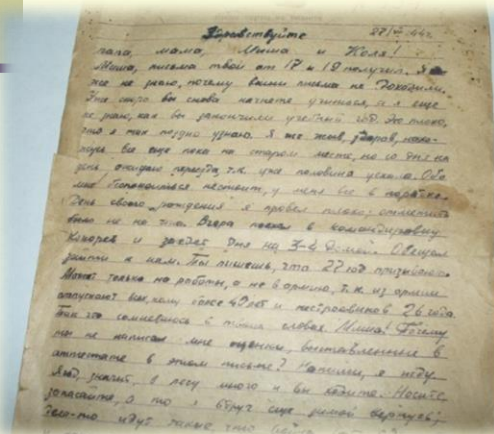 Здравствуйте 27/ 44г.
папа, мама, Миша и Коля!
Миша, письма твои от 17 и 18 получил. Я
же не знаю, почему ваши письма не доходили.
Уже скоро вы снова начнете учиться, а я еще
не знаю, как вы закончили учебный год. Это плохо,
что я так поздно узнаю. Я же жив, здоров, нахо-
жусь все еще пока на старом месте, но со дня на
день ожидаю переезда, т.к. уже половина уехала. Обо
мне беспокоиться не стоит, у меня все в порядке.
День своего рождения я провел плохо; отметить
было не на что. Вчера поехал в командировку
и заедет дня на 3-4 домой. Обещал
зайти к нам. Ты пишешь, что 27 год призывают.
Может только на работы, а не в армию, т.к. из армии
отпускают всех, кому более 49 лет и нестроевиков 26 года.
Так что сомневаюсь в твоих словах. Миша! Почему
ты не написал мне оценки, выставленные в
аттестате в этом письме? Напиши, я жду.
значит, в лесу много и вы ходите. Носите,
запасайте, а то я вдруг еще зимой вернусь;
идут такие, что